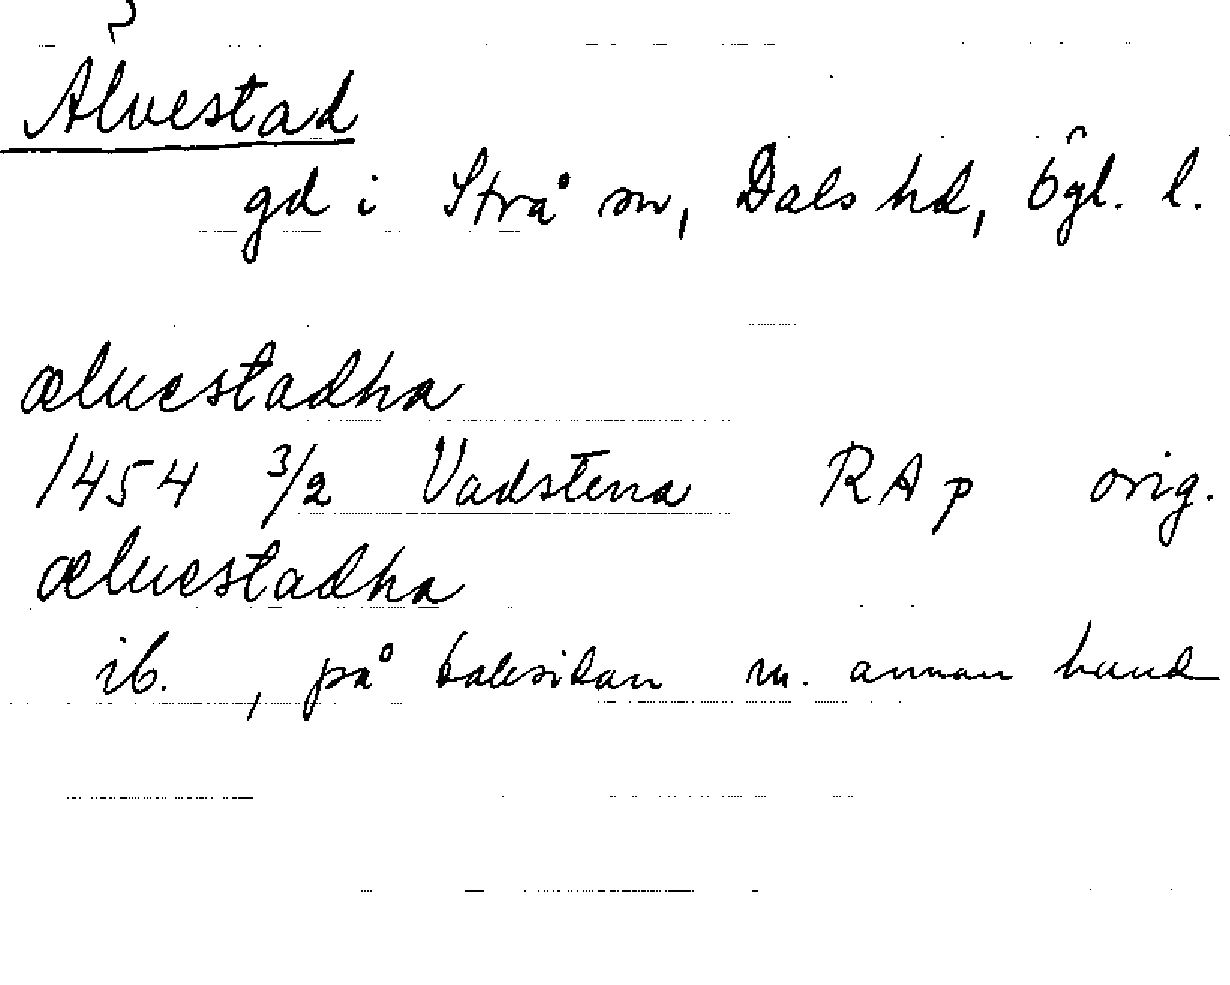 Älvestad
gd i Strå sn, Dals hd, Ögl. l.
æluestadha
1454 3/2 Vadstena RAp orig.
æluestadha
ib. , på baksidan m. annan hand